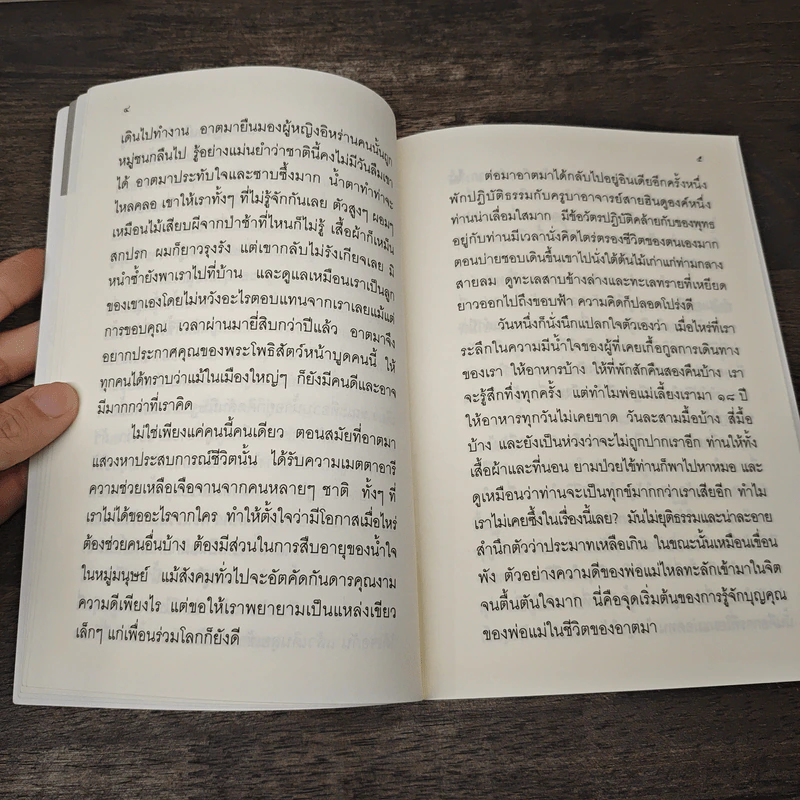 ๔
เดินไปทำงาน อาตมายืนมองผู้หญิงอิหร่านคนนั้นถูก
หมู่ชนกลืนไป รู้อย่างแม่นยำว่าชาตินี้คงไม่มีวันลืมเขา
ได้ อาตมาประทับใจและซาบซึ้งมาก น้ำตาทำท่าจะ
ไหลคลอ เขาให้เราทั้งๆ ที่ไม่รู้จักกันเลย ตัวสูงๆ ผอมๆ
เหมือนไม้เสียบผีจากป่าช้าที่ไหนก็ไม่รู้ เสื้อผ้าก็เหม็น
สกปรก ผมก็ยาวรุงรัง แต่เขากลับไม่รังเกียจเลย มิ
หนำซ้ำยังพาเราไปที่บ้าน และดูแลเหมือนเราเป็นลูก
ของเขาเองโดยไม่หวังอะไรตอบแทนจากเราเลยแม้แต่
การขอบคุณ เวลาผ่านมายี่สิบกว่าปีแล้ว อาตมาจึง
อยากประกาศคุณของพระโพธิสัตว์หน้าบูดคนนี้ ให้
ทุกคนได้ทราบว่าแม้ในเมืองใหญ่ๆ ก็ยังมีคนดีและอาจ
มีมากกว่าที่เราคิด
ไม่ใช่เพียงแค่คนนี้คนเดียว ตอนสมัยที่อาตมา
แสวงหาประสบการณ์ชีวิตนั้น ได้รับความเมตตาอารี
ความช่วยเหลือเจือจานจากคนหลายๆ ชาติ ทั้งๆ ที่
เราไม่ได้ขออะไรจากใคร ทำให้ตั้งใจว่ามีโอกาสเมื่อไหร่
ต้องช่วยคนอื่นบ้าง ต้องมีส่วนในการสืบอายุของน้ำใจ
ในหมู่มนุษย์ แม้สังคมทั่วไปจะอัตคัดกันดารคุณงาม
ความดีเพียงไร แต่ขอให้เราพยายามเป็นแหล่งเขียว
เล็กๆ แก่เพื่อนร่วมโลกก็ยังดี
๕
ต่อมาอาตมาได้กลับไปอยู่อินเดียอีกครั้งหนึ่ง
พักปฏิบัติธรรมกับครูบาอาจารย์สายฮินดูองค์หนึ่ง
ท่านน่าเลื่อมใสมาก มีข้อวัตรปฏิบัติคล้ายกับของพุทธ
อยู่กับท่านมีเวลานั่งคิดไตร่ตรองชีวิตของตนเองมาก
ตอนบ่ายชอบเดินขึ้นเขาไปนั่งใต้ต้นไม้เก่าแก่ท่ามกลาง
สายลม ดูทะเลสาบข้างล่างและทะเลทรายที่เหยียด
ยาวออกไปถึงขอบฟ้า ความคิดก็ปลอดโปร่งดี
วันหนึ่งก็นั่งนึกแปลกใจตัวเองว่า เมื่อไหร่ที่เรา
ระลึกในความมีน้ำใจของผู้ที่เคยเกื้อกูลการเดินทาง
ของเรา ให้อาหารบ้าง ให้ที่พักสักคืนสองคืนบ้าง เรา
จะรู้สึกทึ่งทุกครั้ง แต่ทำไมพ่อแม่เลี้ยงเรามา ๑๘ ปี
ให้อาหารทุกวันไม่เคยขาด วันละสามมื้อบ้าง สี่มื้อ
บ้าง และยังเป็นห่วงว่าจะไม่ถูกปากเราอีก ท่านให้ทั้ง
เสื้อผ้าและที่นอน ยามป่วยไข้ท่านก็พาไปหาหมอ และ
ดูเหมือนว่าท่านจะเป็นทุกข์มากกว่าเราเสียอีก ทำไม
เราไม่เคยซึ้งในเรื่องนี้เลย? มันไม่ยุติธรรมและน่าละอาย
สำนึกตัวว่าประมาทเหลือเกิน ในขณะนั้นเหมือนเขื่อน
พัง ตัวอย่างความดีของพ่อแม่ไหลทะลักเข้ามาในจิต
จนตื้นตันใจมาก นี่คือจุดเริ่มต้นของการรู้จักบุญคุณ
ของพ่อแม่ในชีวิตของอาตมา